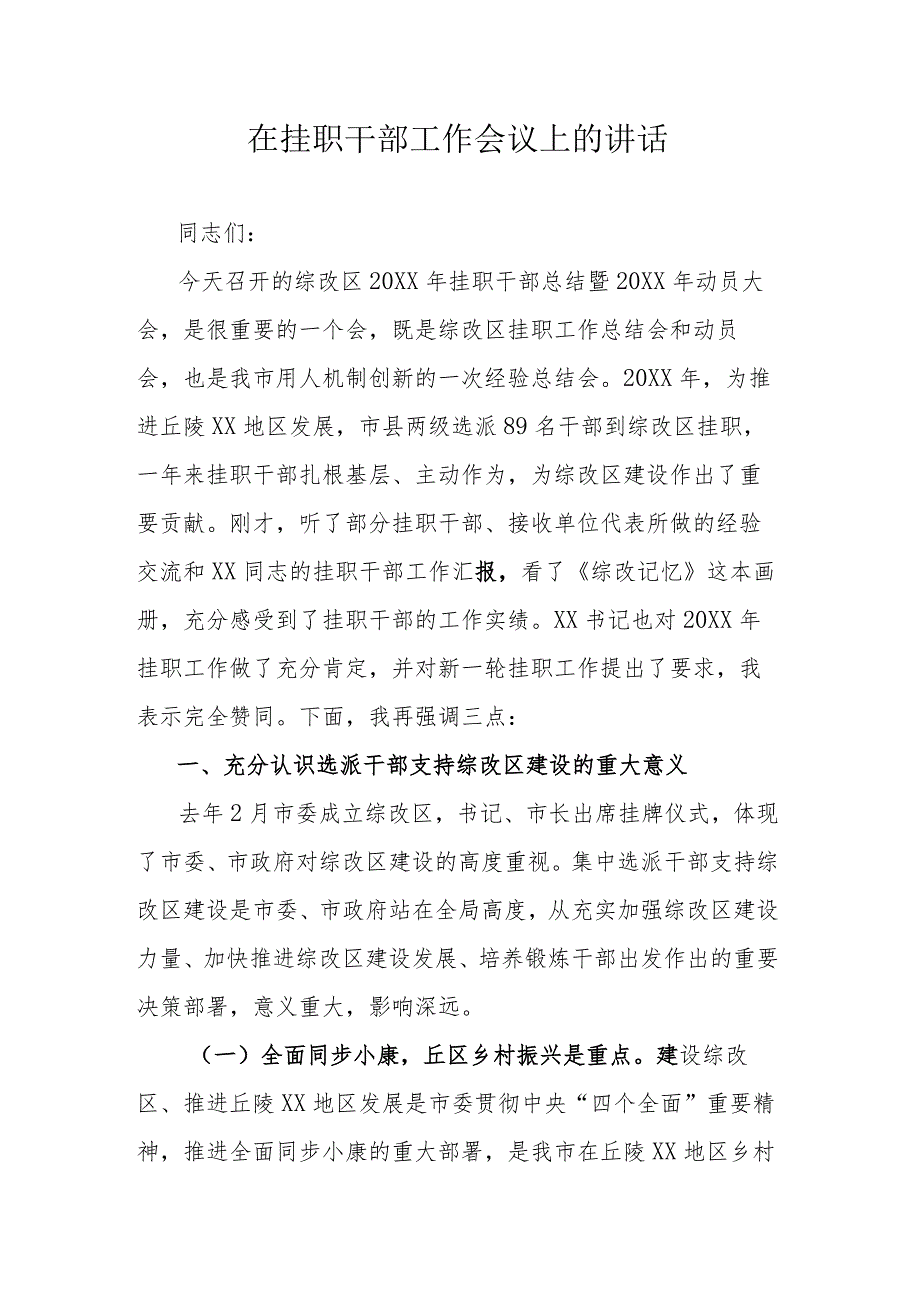 在挂职干部工作会议上的讲话
同志们：
今天召开的综改区 20XX 年挂职干部总结暨 20XX 年动员大
会，是很重要的一个会，既是综改区挂职工作总结会和动员
会，也是我市用人机制创新的一次经验总结会。20XX 年，为推
进丘陵 XX 地区发展，市县两级选派 89 名干部到综改区挂职，
一年来挂职干部扎根基层、主动作为，为综改区建设作出了重
要贡献。刚才，听了部分挂职干部、接收单位代表所做的经验
交流和 XX 同志的挂职干部工作汇报，看了《综改记忆》这本画
册，充分感受到了挂职干部的工作实绩。XX 书记也对 20XX 年
挂职工作做了充分肯定，并对新一轮挂职工作提出了要求，我
表示完全赞同。下面，我再强调三点：
一、充分认识选派干部支持综改区建设的重大意义
去年 2 月市委成立综改区，书记、市长出席挂牌仪式，体现
了市委、市政府对综改区建设的高度重视。集中选派干部支持综
改区建设是市委、市政府站在全局高度，从充实加强综改区建设
力量、加快推进综改区建设发展、培养锻炼干部出发作出的重要
决策部署，意义重大，影响深远。
（一）全面同步小康，丘区乡村振兴是重点。建设综改
区、推进丘陵 XX 地区发展是市委贯彻中央“四个全面”重要精
神，推进全面同步小康的重大部署，是我市在丘陵 XX 地区乡村